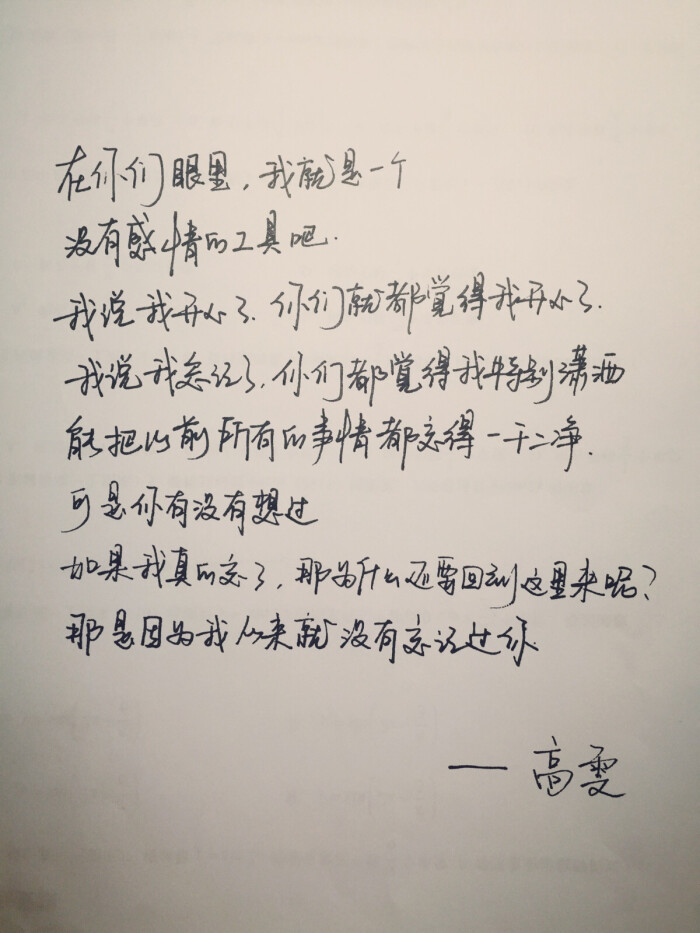 在你们眼里，我就是一个
没有感情的工具吧.
我说我开心了.你们就都觉得我开心了.
我说我忘记了,你们都觉得我特别潇洒
能把以前所有的事情都忘得一干二净.
可是你有没有想过
如果我真的忘了，那为什么还要回到这里来呢？
那是因为我从来就没有忘记过你.
—— 高雯